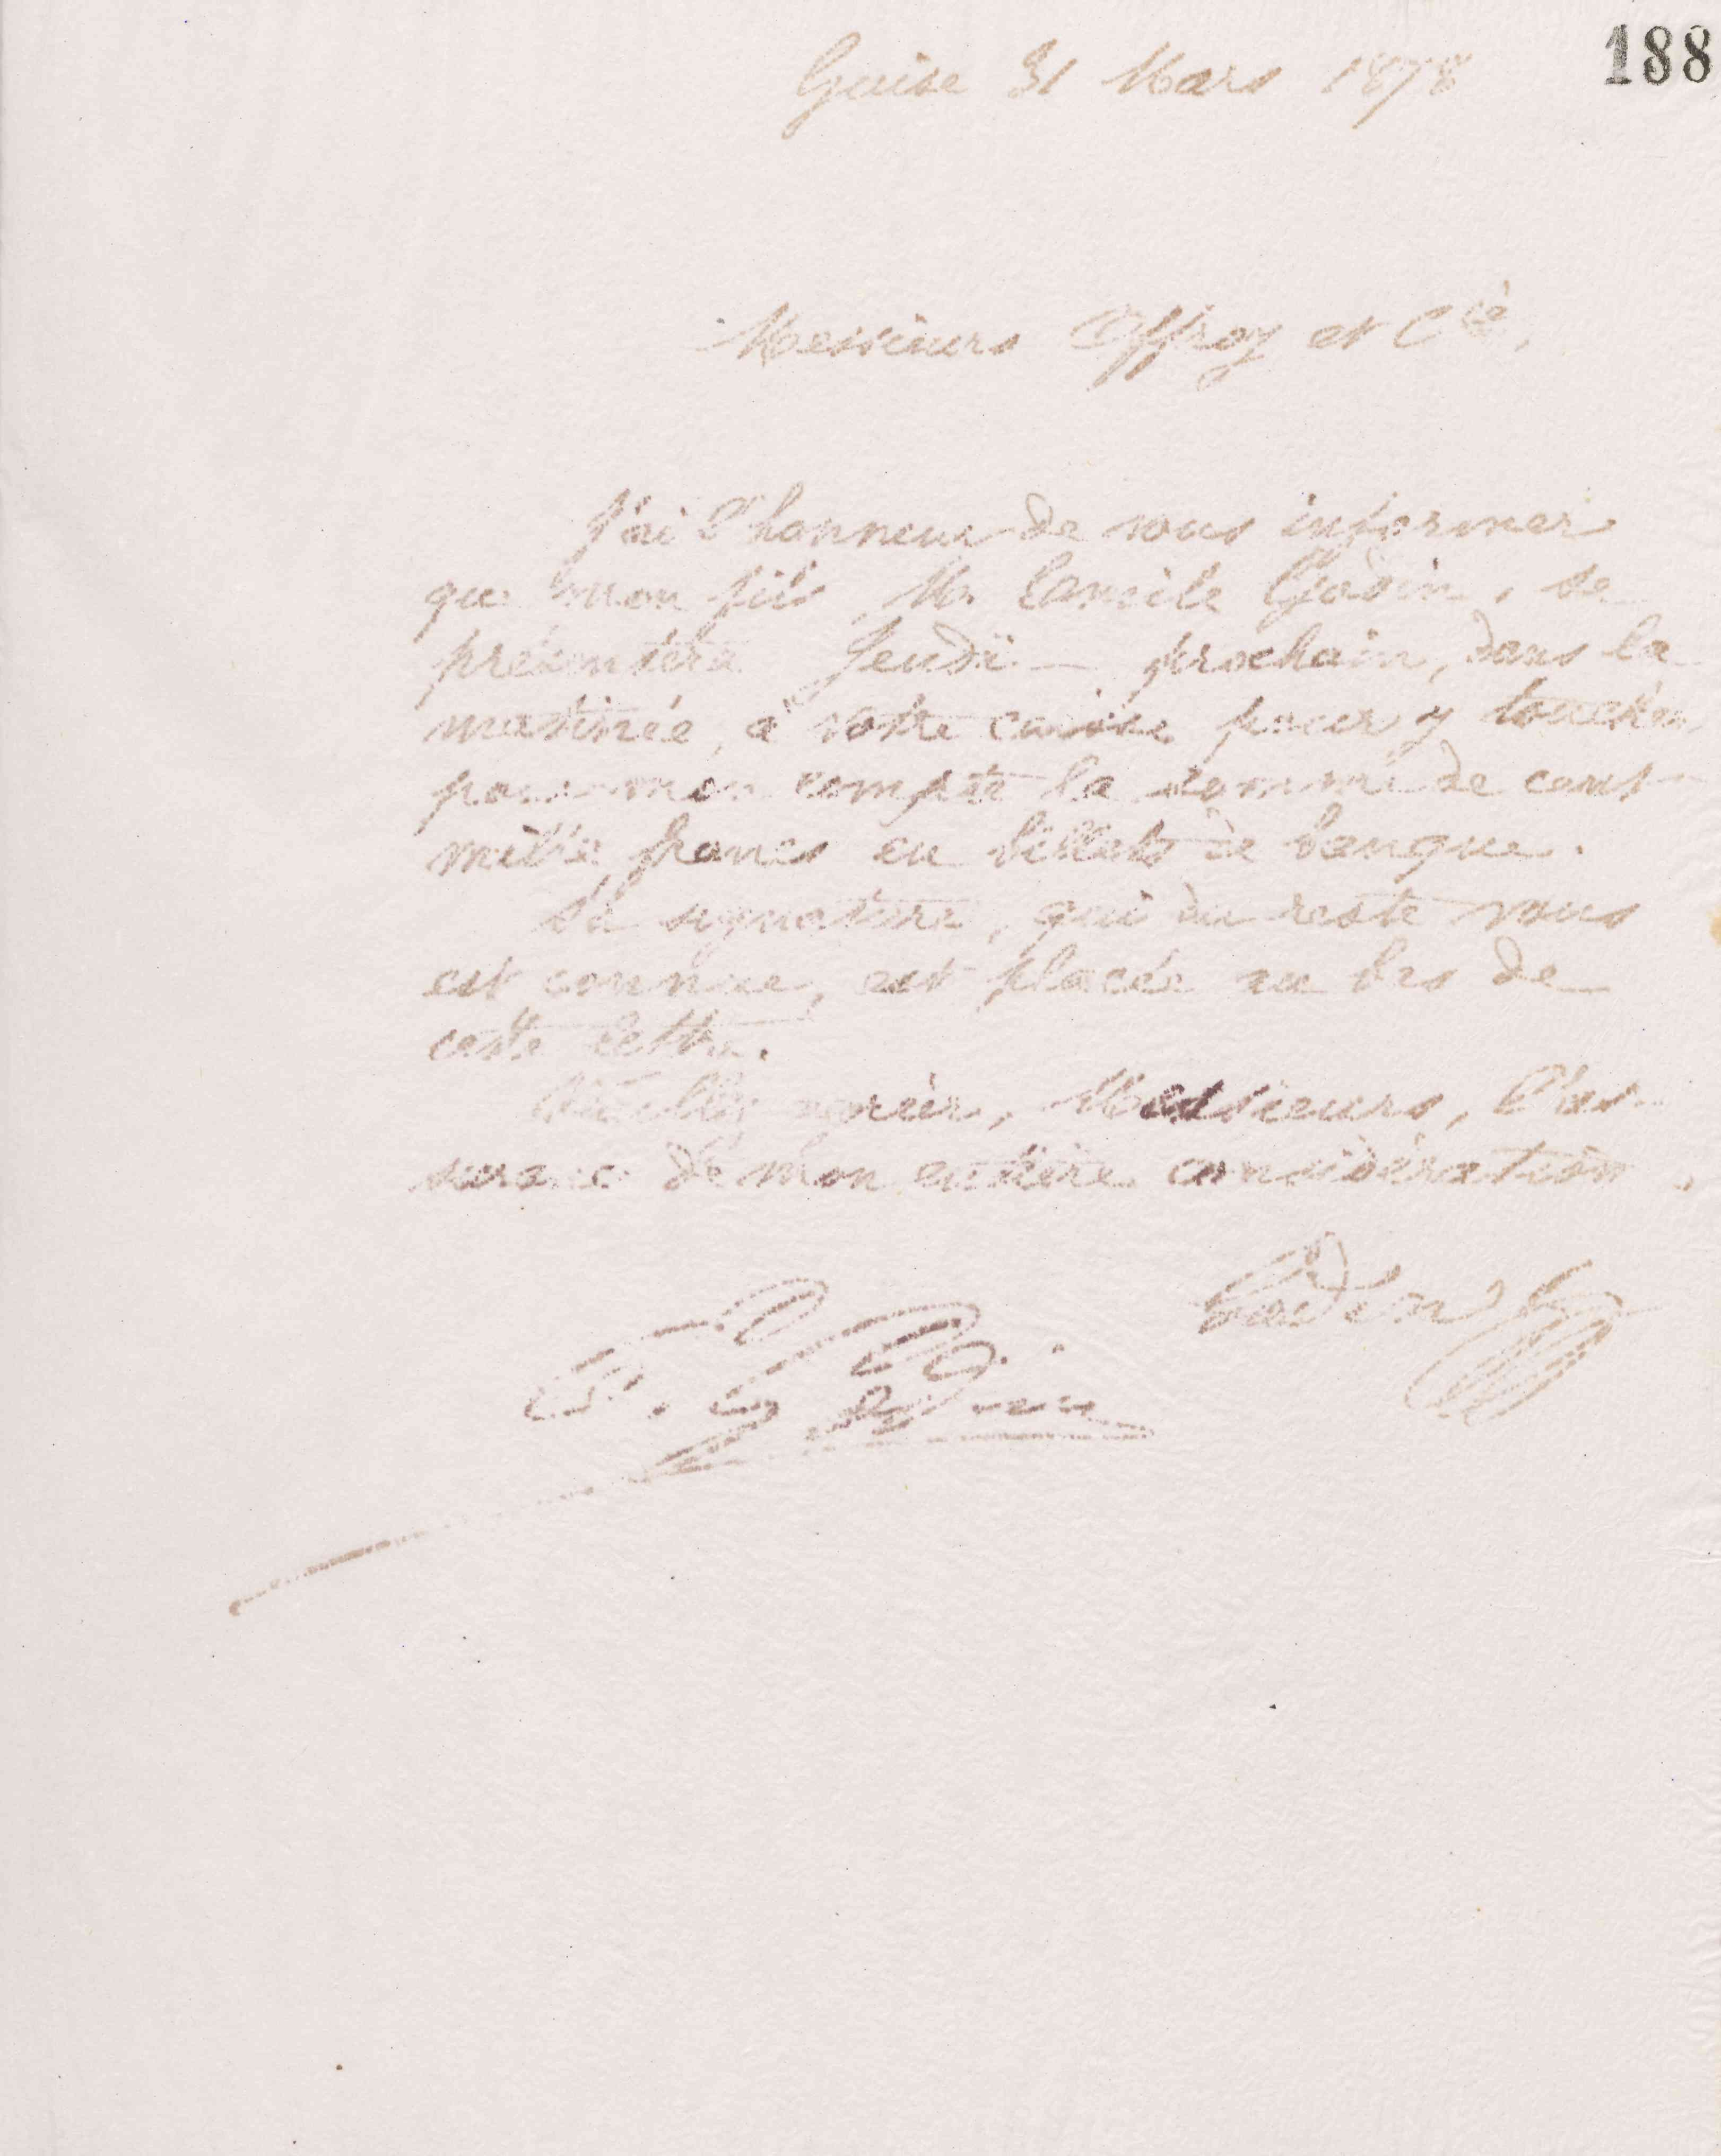 188
Guise 31 Mars 1878
Messieurs Offroy et Cie,
J'ai l'honneur de vous informer
que mon fils M. Emile Godin, se
présentera Jeudi prochain, dans la
matinée, à votre caisse pour y toucher
pour mon compte la somme de cent
mille francs en billets de banque.
Sa signature, qui du reste vous
est connue, est placée au bas de
cette lettre.
Veuillez agréer, Messieurs, l'as-
surance de mon entière considération.
Godin
E. Godin